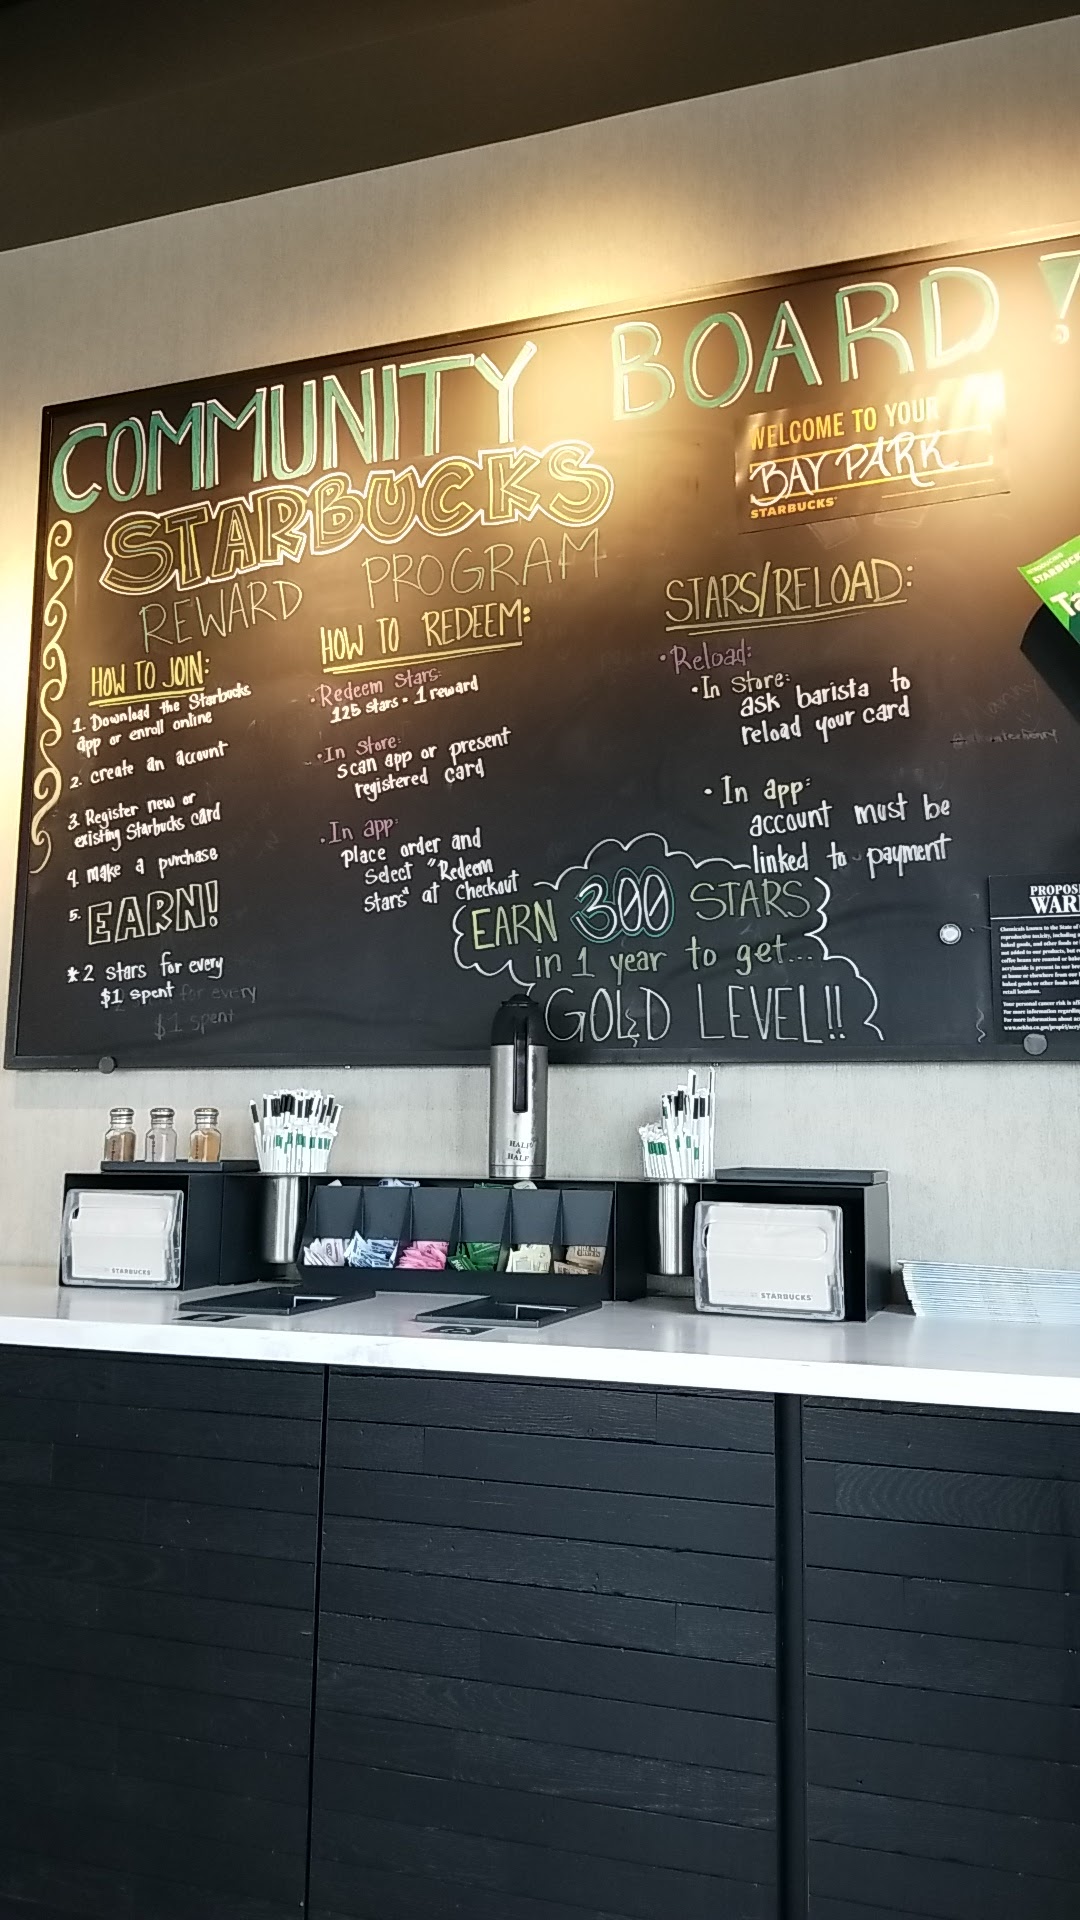 COMMUNITY BOARD!
STARBUCKS
REWARD PROGRAM
HOW TO JOIN:
1. Download the Starbucks
app or enroll online
2. create an account
3. Register new or
existing Starbucks card
4. make a purchase
5. EARN!
* 2 stars for every
$1 spent for every
$1 spent
HOW TO REDEEM:
• Redeem Stars:
125 stars = 1 reward
• In Store:
scan app or present
registered card
• In app:
Place order and
Select "Redeem
stars" at Checkout
WELCOME TO YOUR
BAY PARK
STARBUCKS
STARS/RELOAD:
• Reload:
• In Store:
ask barista to
reload your card
• In app:
account must be
linked to payment
EARN 300 STARS
in 1 year to get...
GOLD LEVEL!!
INTRODUCING
STARBUCK
Ta
PROPOS
WAR
HALF
&
HALF
STARBUCKS
STARBUCKS